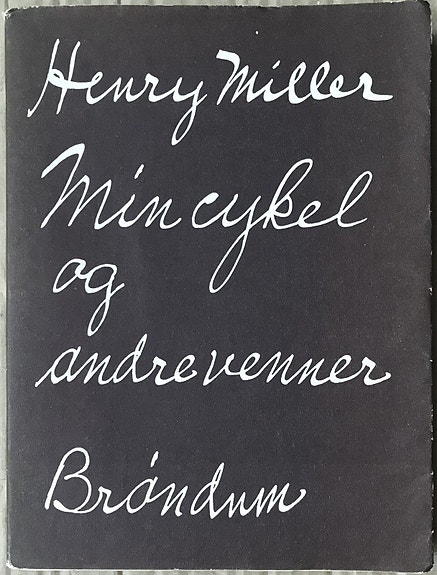 Henry Miller
Min cykel
og
andre venner
Brøndum